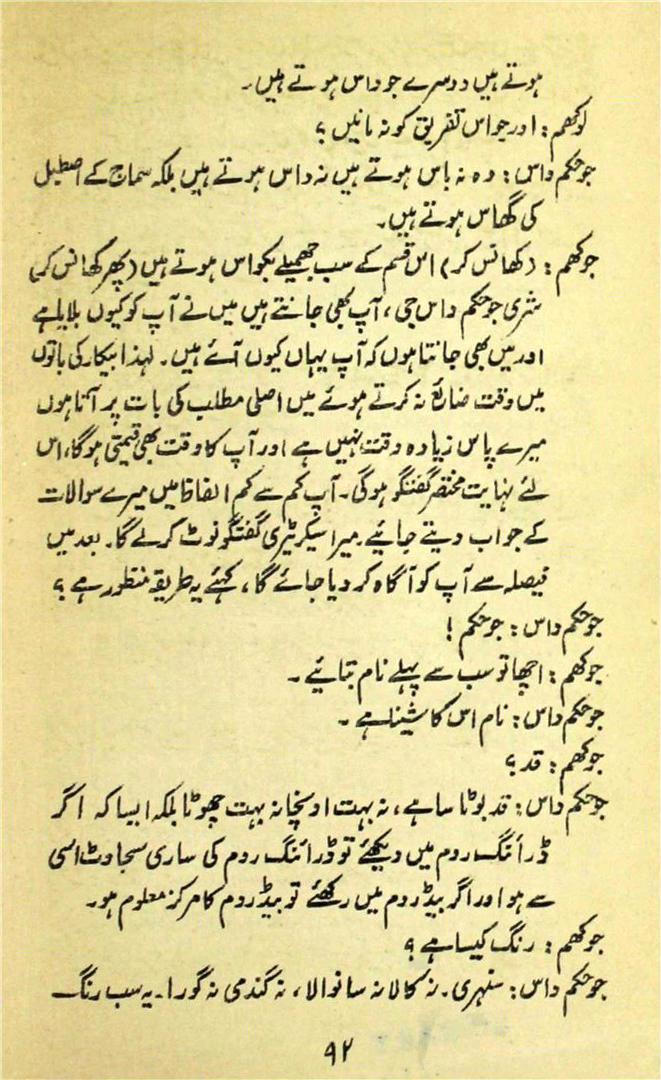 ہوتے ہیں دوسرے جو داس ہوتے ہیں۔
لوکھم: اور جو اس تفریق کو نہ مانیں؟
جو حکم داس: وہ نہ باس ہوتے ہیں نہ داس ہوتے ہیں بلکہ سماج کے اصطبل
کی گھاس ہوتے ہیں۔
جوکھم: (کھانس کر) اس قسم کے سب جھمیلے بکواس ہوتے ہیں (پھر کھانس کر)
شری جو حکم داس جی، آپ بھی جانتے ہیں میں نے آپ کو کیوں بلایا ہے
اور میں بھی جانتا ہوں کہ آپ یہاں کیوں آئے ہیں۔ لہذا بیکار کی باتوں
میں وقت ضائع نہ کرتے ہوئے میں اصلی مطلب کی بات پر آتا ہوں
میرے پاس زیادہ وقت نہیں ہے اور آپ کا وقت بھی قیمتی ہوگا، اس
لئے نہایت مختصر گفتگو ہوگی۔ آپ کم سے کم الفاظ میں میرے سوالات
کے جواب دیتے جائیے۔ میرا سیکرٹیری گفتگو نوٹ کرلے گا۔ بعد میں
فیصلہ سے آپ کو آگاہ کر دیا جائے گا، کہئے یہ طریقہ منظور ہے؟
جو حکم داس: جو حکم!
جوکھم: اچھا تو سب سے پہلے نام بتائیے۔
جو حکم داس: نام اس کا شیلا ہے۔
جوکھم: قد؟
جو حکم داس: قد بوٹا سا ہے، نہ بہت اونچا نہ بہت چھوٹا بلکہ ایسا کہ اگر
ڈرائنگ روم میں دیکھئے تو ڈرائنگ روم کی ساری سجاوٹ اسی
سے ہو اور اگر بیڈ روم میں رکھئے تو بیڈ روم کا مرکز معلوم ہو۔
جوکھم: رنگ کیسا ہے؟
جو حکم داس: سنہری۔ نہ کالا نہ سانوالا، نہ گندمی نہ گورا۔ یہ سب رنگ
۹۲